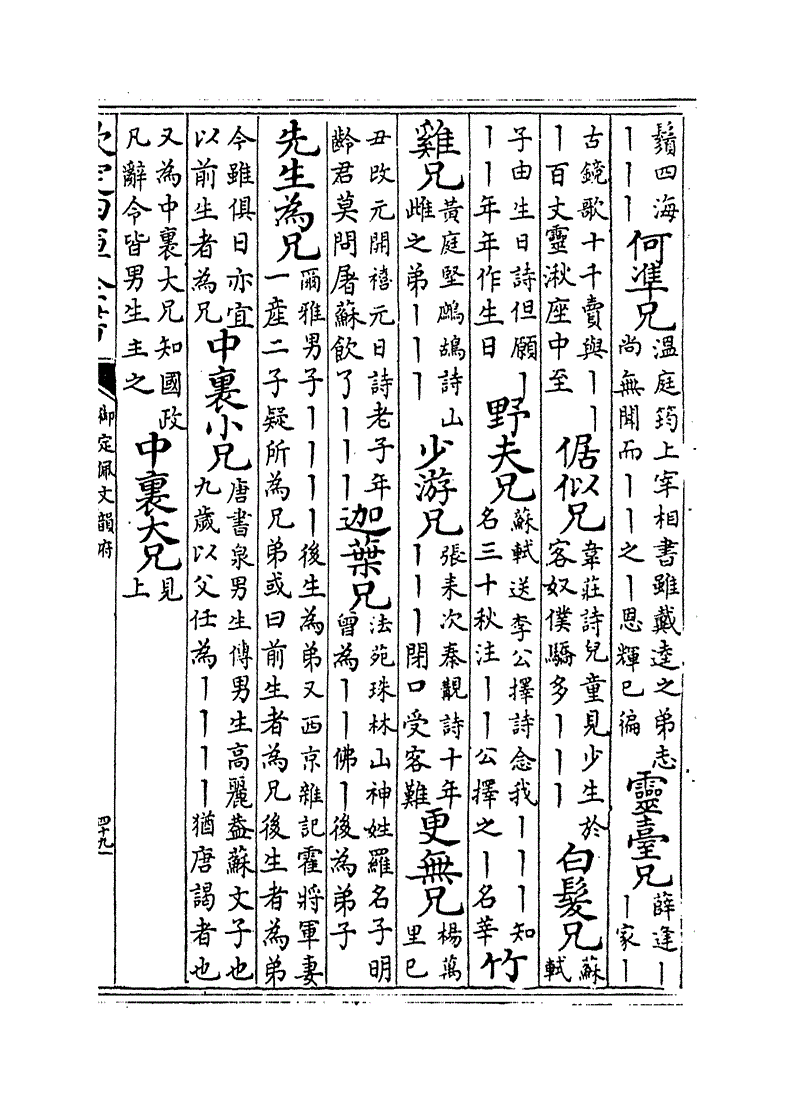 鬚四海｜｜｜何準兄溫庭筠上宰相書雖戴逵之弟志尚無聞而｜｜之｜恩輝已徧靈臺兄薛逢｜｜家｜
古鏡歌十千賣與｜｜｜百丈靈湫座中至倨似兄韋莊詩兒童見少生於客奴僕驕多｜｜｜白髮兄蘇軾
子由生日詩但願｜｜｜年年作生日野夫兄蘇軾送李公擇詩念我｜｜｜知名三十秋注｜｜公擇之｜名莘竹
雞兄黃庭堅鷓鴣詩山雌之弟｜｜｜少游兄張耒次秦觀詩十年｜｜｜閉口受客難更無兄楊萬里巳
丑改元開禧元日詩老子年齡君莫問屠蘇飲了｜｜｜迦葉兄法苑珠林山神姓羅名子明曾為｜｜佛｜後為弟子
先生為兄爾雅男子｜｜｜｜後生為弟又西京雜記霍將軍妻一産二子疑所為兄弟或曰前生者為兄後生者為弟
今雖俱日亦宜以前生者為兄中裏小兄唐書泉男生傳男生高麗蓋蘇文子也九歲以父任為｜｜｜｜猶唐謁者也
又為中裏大兄知國政凡辭令皆男生主之中裏大兄見上
欽定四庫全書
御定佩文韻府
四十九